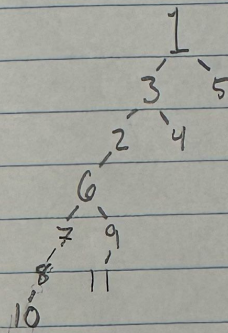 1
3 5
2 4
6
7 9
8 11
10